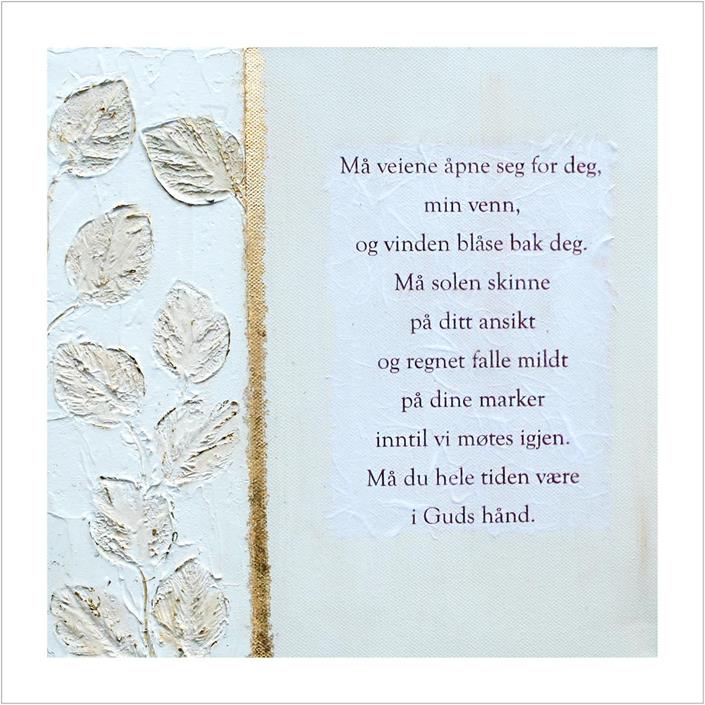 Må veiene åpne seg for deg,
min venn,
og vinden blåse bak deg.
Må solen skinne
på ditt ansikt
og regnet falle mildt
på dine marker
inntil vi møtes igjen.
Må du hele tiden være
i Guds hånd.